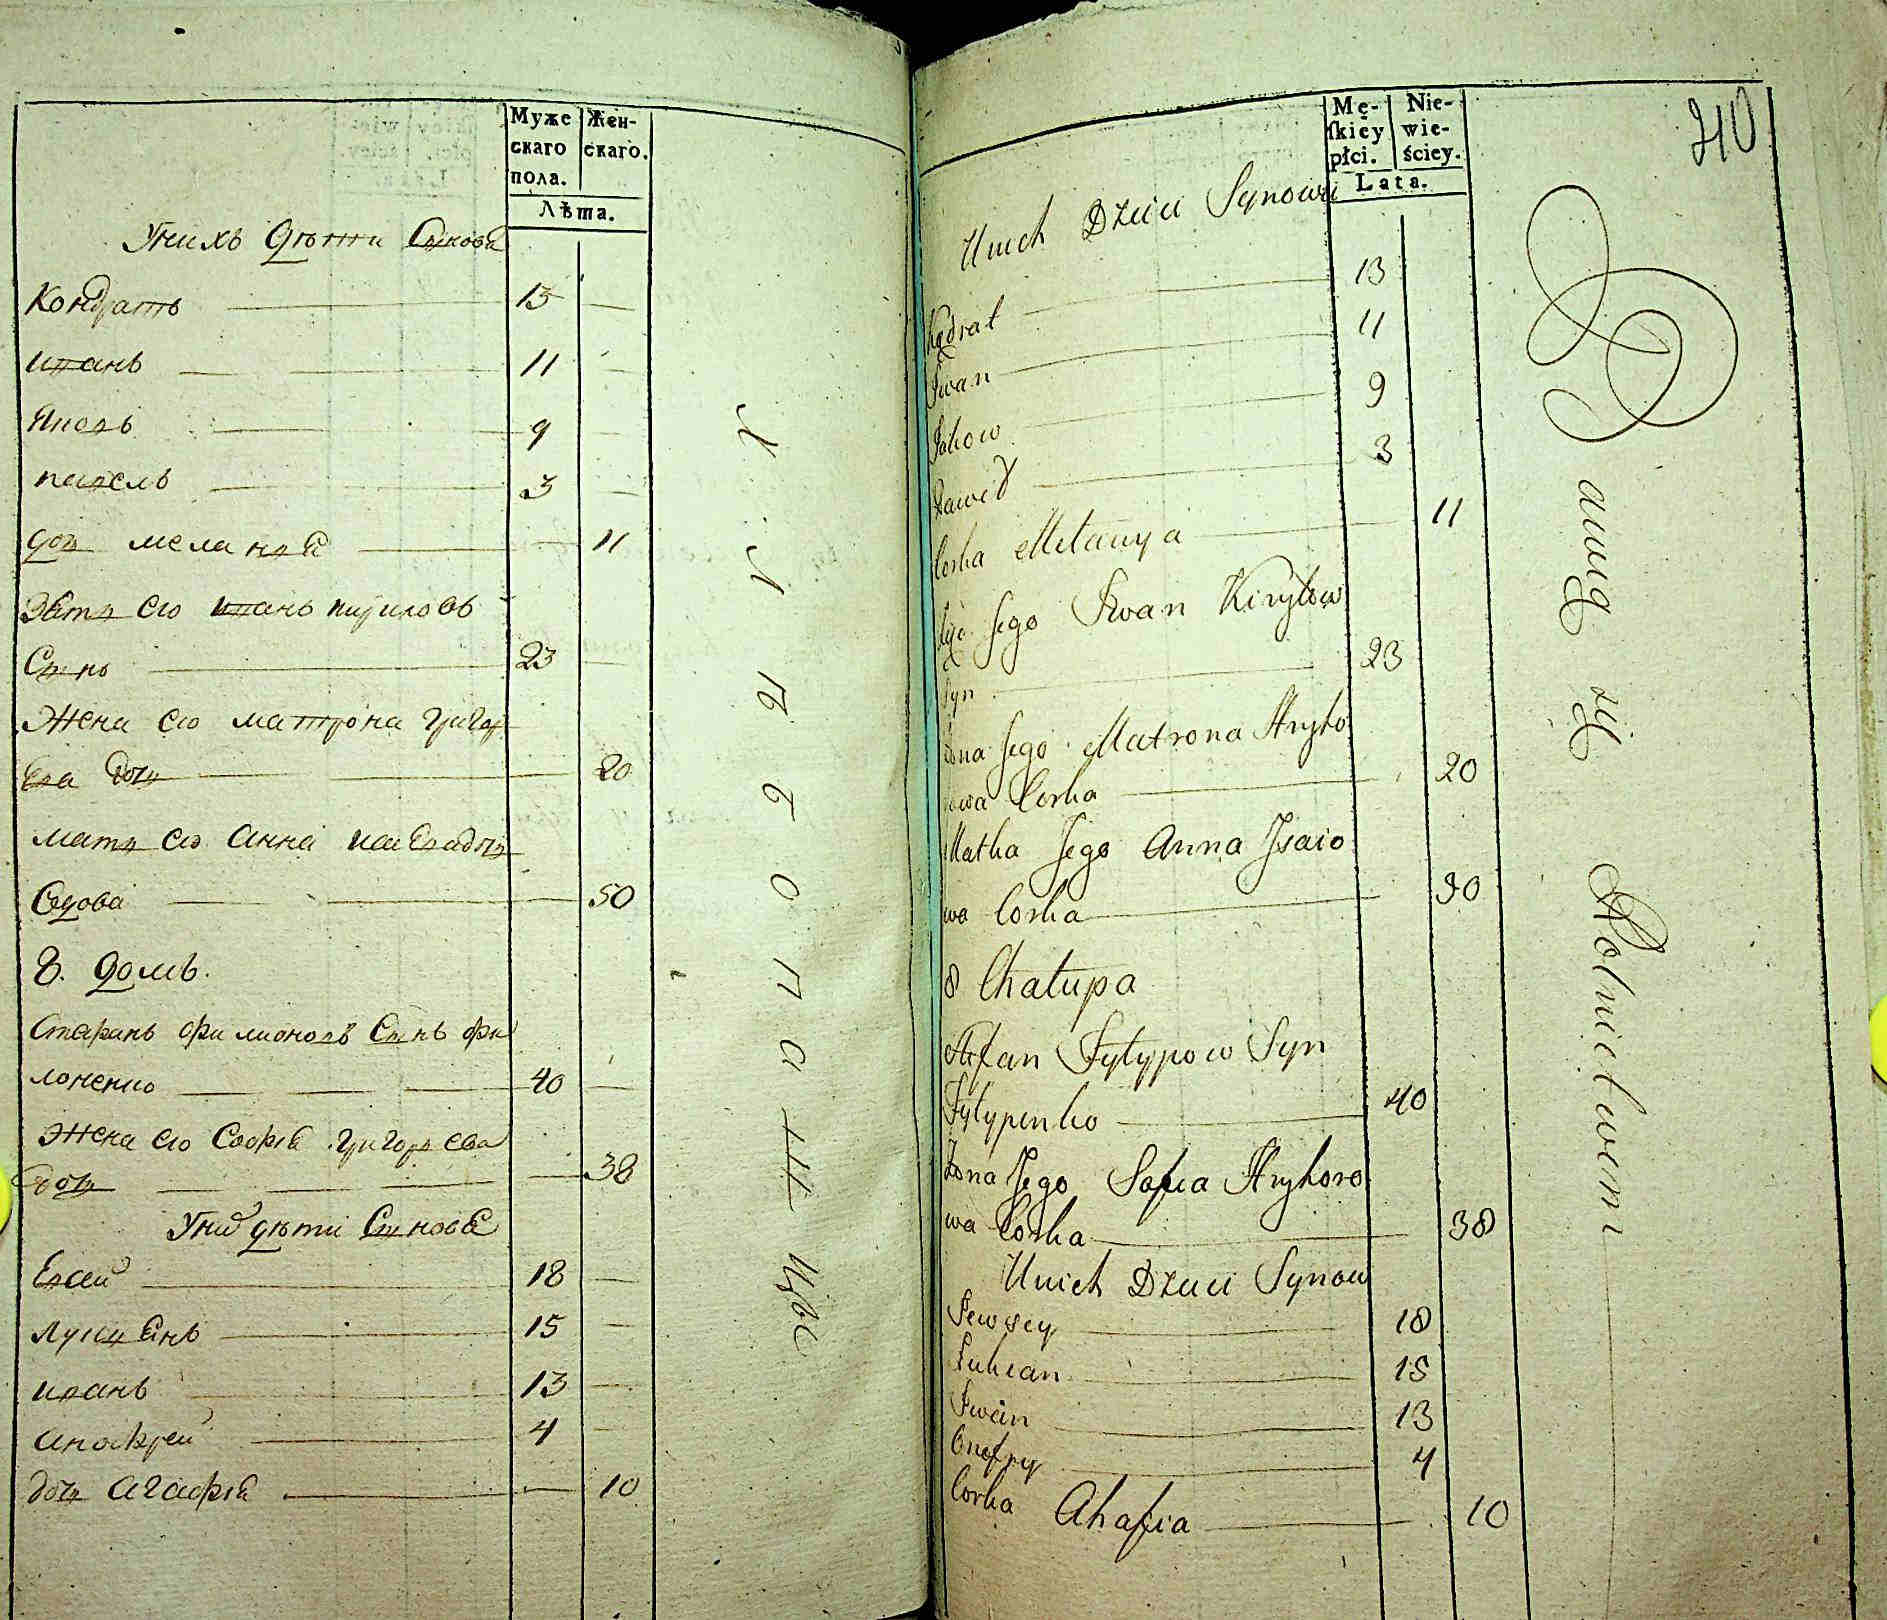 Муже
скаго
пола.
Жен-
скаго.
Лѣта.
Унихъ дѣти Сынове
Кондратъ 13
иванъ 11
Яковъ 9
павелъ 3
дочь меланія 11
Зять его иванъ кириловъ
Сынъ 23
Жена его матрона григорь
ева дочь 20
мать его анна исаева дочь
вдова 50
8. домъ.
Степанъ филиповъ Сынъ фи
липенко 40
Жена его Софія григорьева
дочь 38
Уних дѣти Сынове
Евсей 18
лукіянъ 15
иванъ 13
анофрей 4
дочь агафія 10
Хлѣбопашцы
Mę-
ſkiey
płci.
Nie-
wie-
ściey.
Lata.
210
Unich Dzieci Synowie
Kędrat 13
Iwan 11
Jakow 9
Paweł 3
Corka Melanya 11
Jego Iwan Kiryłow
Syn 23
Żona Jego Matrona Hryho
rowa Corka 20
Matka Jego Anna Isaio
wa Corka 50
8 Chałupa
Stefan Fylypow Syn
Fylypenko 40
Żona Jego Sofia Hryhoro
wa Corka 38
Unich Dzieci Synow
Jewsey 18
Łukian 15
Iwan 13
Onofry 4
Corka Ahafia 10
Bawią się Rolnictwem